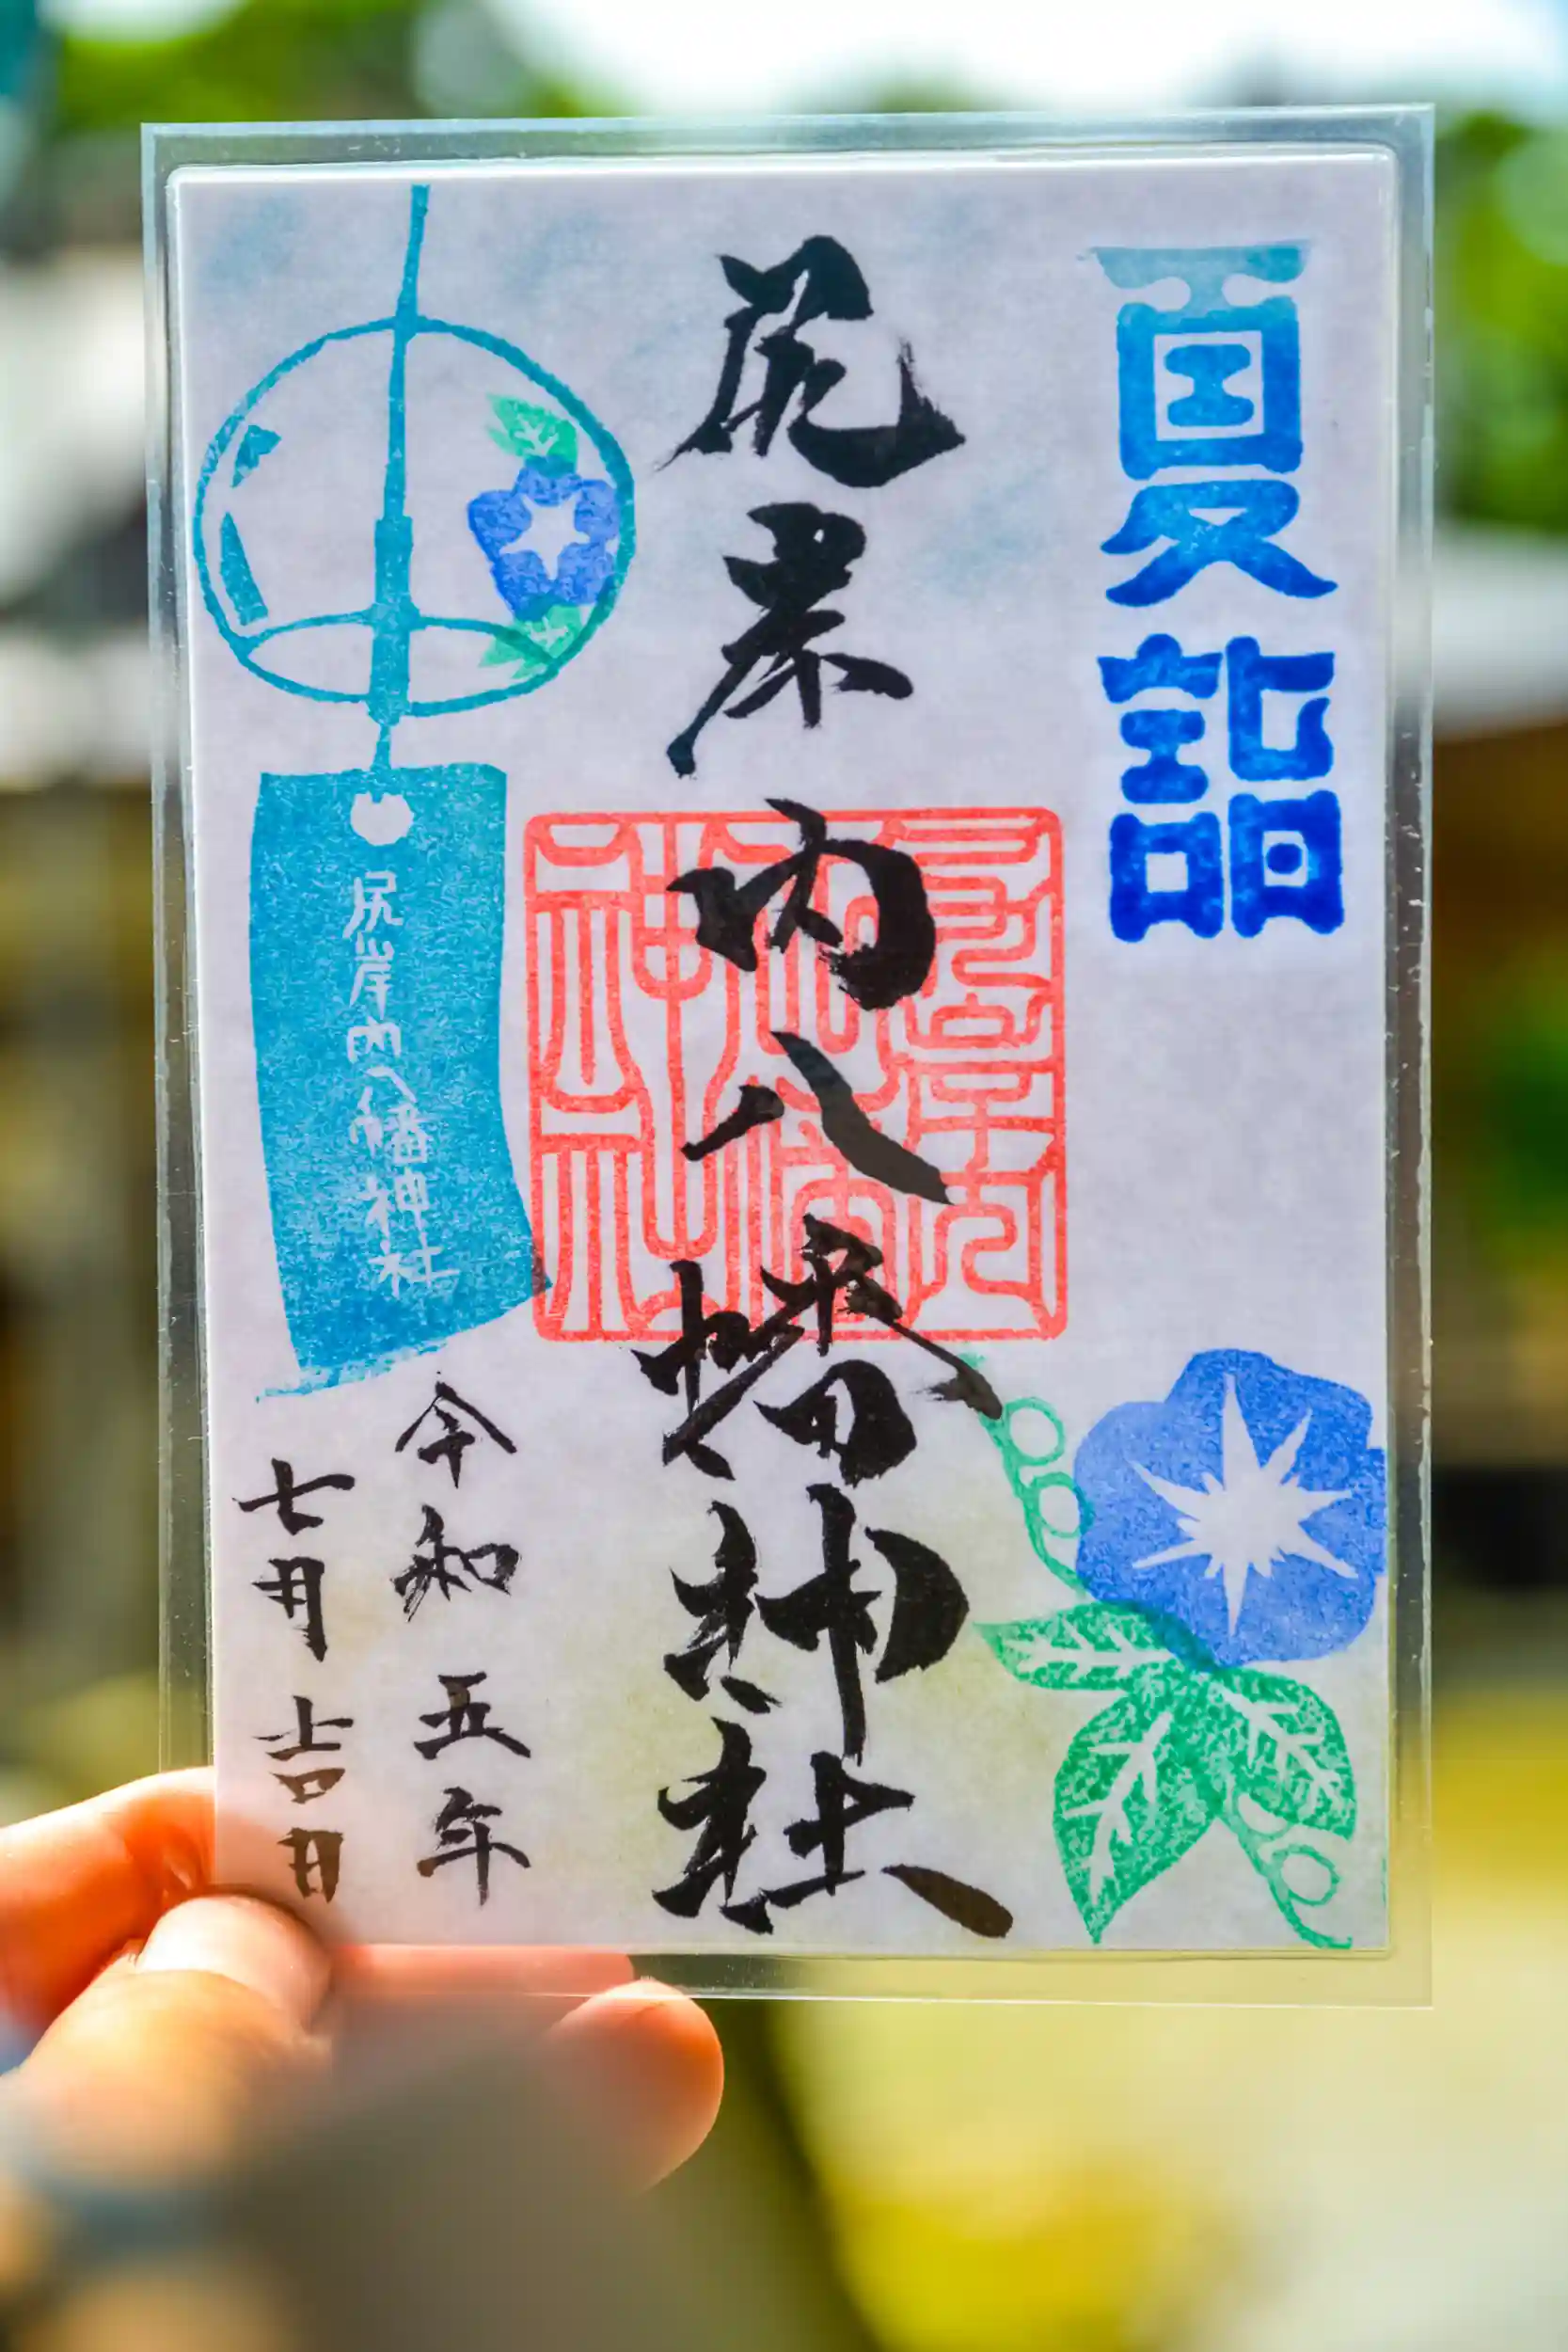 夏詣
尻岸内八幡神社
尻岸内
八幡
神社
尻岸内八幡神社
令和五年
七月吉日